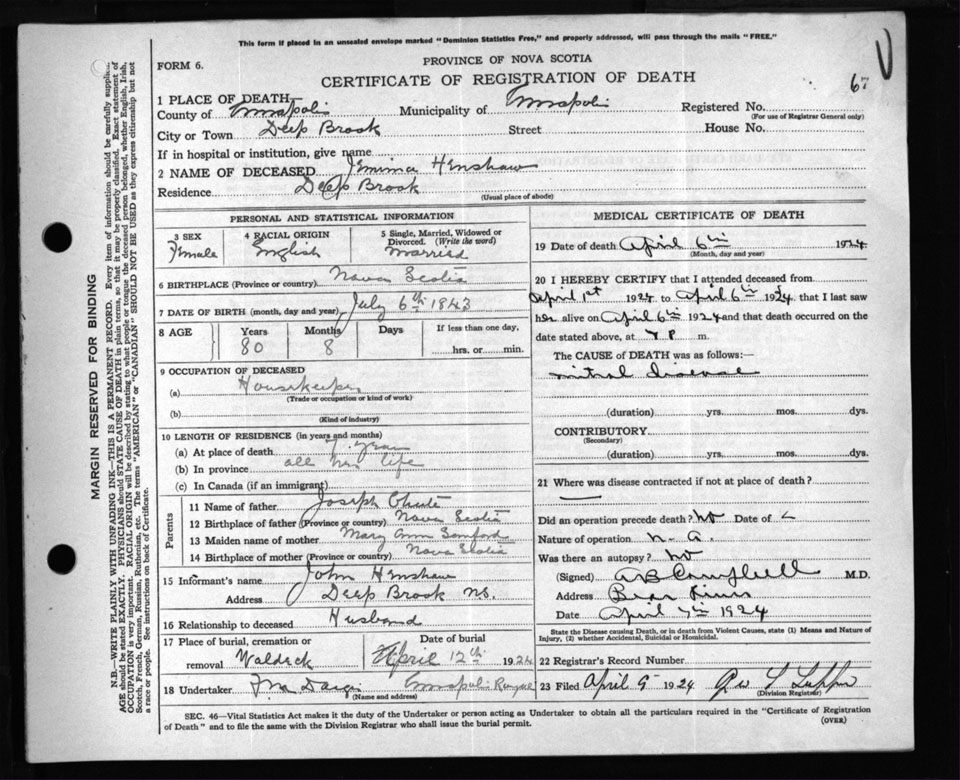 This form if placed in an unsealed envelope marked "Dominion Statistics Free," and properly addressed, will pass through the mails "FREE."
FORM 6.
PROVINCE OF NOVA SCOTIA
CERTIFICATE OF REGISTRATION OF DEATH
67
1 PLACE OF DEATH—
County of Annapolis Municipality of Annapolis Registered No.
(For use of Registrar General only)
City or Town Deep Brook Street House No.
If in hospital or institution, give name
2 NAME OF DECEASED Jemima Henshaw
Residence Deep Brook
(Usual place of abode)
PERSONAL AND STATISTICAL INFORMATION
3 SEX 4 RACIAL ORIGIN 5 Single, Married, Widowed or Divorced. (Write the word)
Female English Married
6 BIRTHPLACE (Province or country) Nova Scotia
7 DATE OF BIRTH (month, day and year) July 6th 1843
8 AGE Years Months Days If less than one day.
80 8 hrs. or min.
9 OCCUPATION OF DECEASED
(a) Housekeeper
(Trade or occupation or kind of work)
(b)
(Kind of industry)
10 LENGTH OF RESIDENCE (in years and months)
(a) At place of death 7 years
(b) In province all her life
(c) In Canada (if an immigrant)
Parents
11 Name of father Joseph Chute
12 Birthplace of father (Province or country) Nova Scotia
13 Maiden name of mother Mary Ann Sanford
14 Birthplace of mother (Province or country) Nova Scotia
15 Informant's name John Henshaw
Address Deep Brook NS.
16 Relationship to deceased Husband
17 Place of burial, cremation or Date of burial
removal Waldeck April 12th 1924
18 Undertaker Annapolis Royal
(Name and address)
MEDICAL CERTIFICATE OF DEATH
19 Date of death April 6th 1924
(Month, day and year)
20 I HEREBY CERTIFY that I attended deceased from
April 1st 1924 to April 6th 1924 that I last saw
her alive on April 6th 1924 and that death occurred on the
date stated above, at P m.
The CAUSE OF DEATH was as follows:—
mitral disease
(duration) yrs. mos. dys.
CONTRIBUTORY
(Secondary)
(duration) yrs. mos. dys.
21 Where was disease contracted if not at place of death?
Did an operation precede death? No Date of
Nature of operation n. a.
Was there an autopsy? No
(Signed) A B Campbell M.D.
Address Bear River
Date April 7th 1924
State the Disease causing Death, or in death from Violent Causes, state (1) Means and Nature of
Injury, (2) whether Accidental, Suicidal or Homicidal.
22 Registrar's Record Number
23 Filed April 9 1924
(Division Registrar)
SEC. 46—Vital Statistics Act makes it the duty of the Undertaker or person acting as Undertaker to obtain all the particulars required in the "Certificate of Registration
of Death" and to file the same with the Division Registrar who shall issue the burial permit.
(OVER)
MARGIN RESERVED FOR BINDING
N.B.—WRITE PLAINLY WITH UNFADING INK—THIS IS A PERMANENT RECORD. Every item of information should be carefully supplied.
AGE should be stated EXACTLY. PHYSICIANS should STATE CAUSE OF DEATH in plain terms, so that it may be properly classified. Exact statement of
OCCUPATION is very important. RACIAL ORIGIN will be described by stating to what people or tongue the deceased person belonged, whether English, Irish,
Scotch, French, German, Russian, Ruthenian, etc. The terms "AMERICAN" or "CANADIAN" SHOULD NOT BE USED as they express citizenship but not
a race or people. See instructions on back of Certificate.